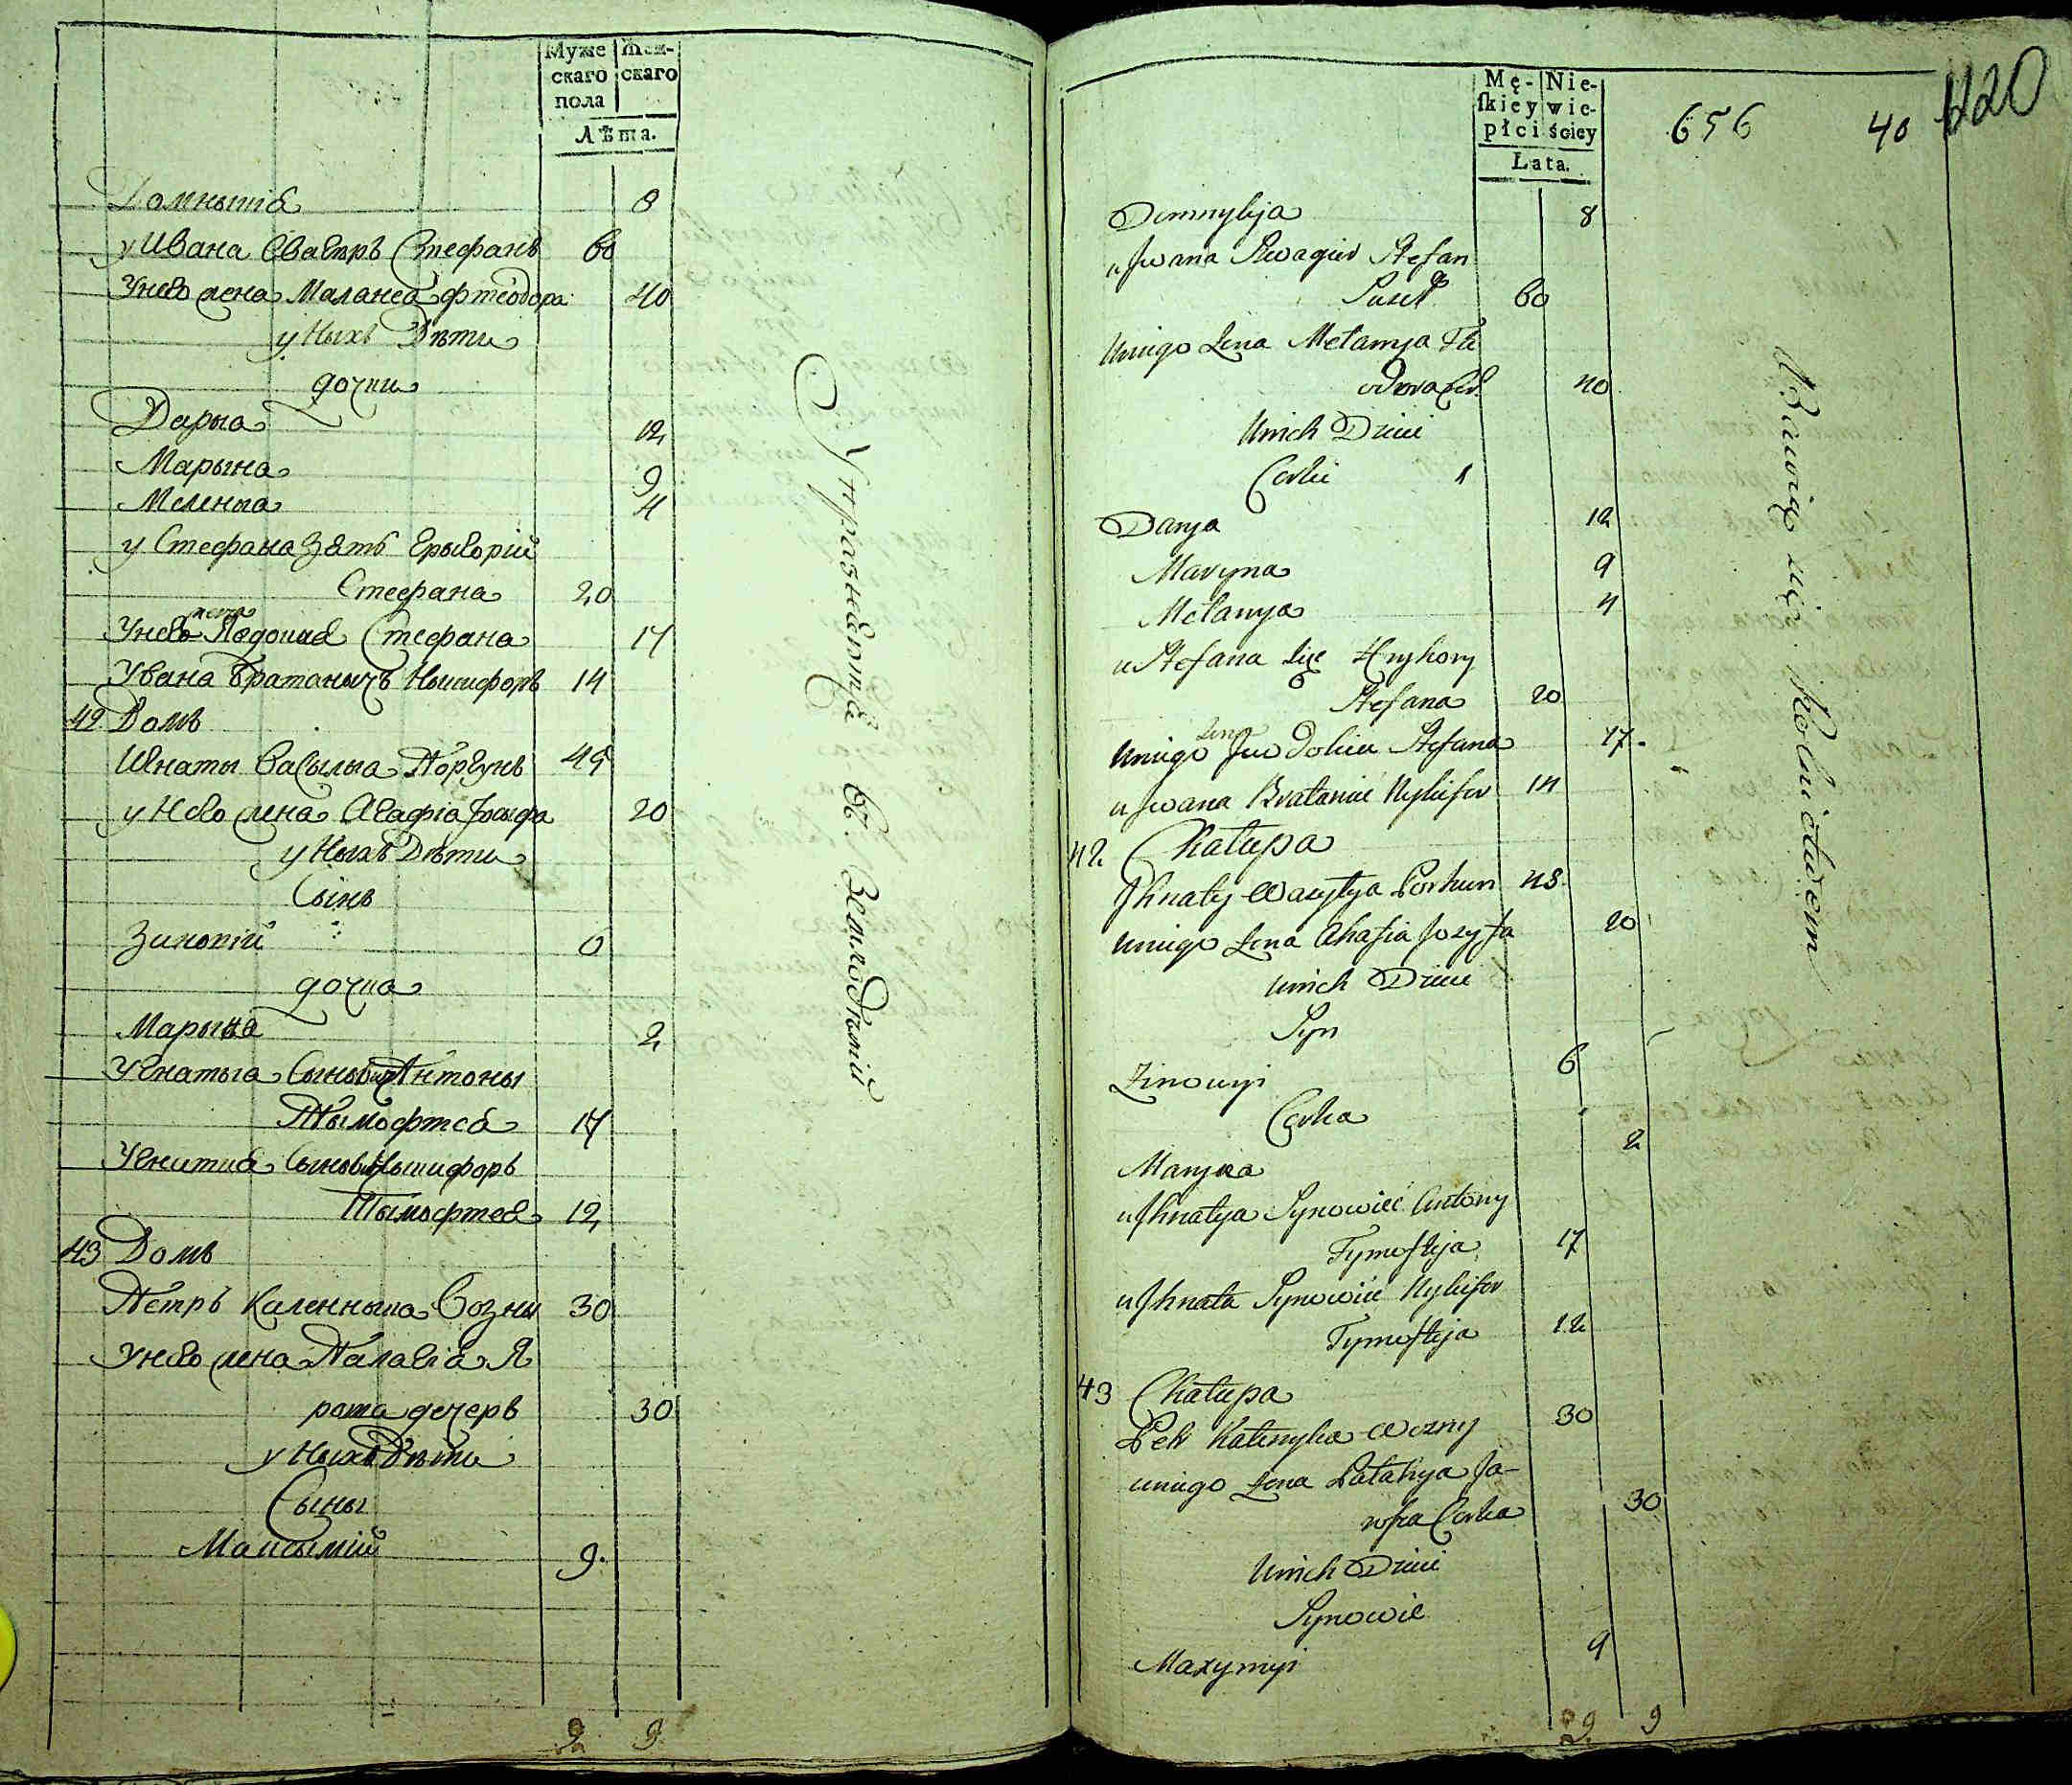 Муже
скаго
пола
Жен-
скаго
Лѣта.
Домныкіа 8
у Ивана Свагеръ Стефанъ 60
У него жена Маланеа Фтеодора 40
у Ныхъ Дѣти
дочки
Дарыа 12
Марына 9
Меленыа 4
у Стефана Зять Грыгорій
Стефана 20
У него жена Явдокиа Стефана 17
У Ивана Братанычъ Ныкифоръ 14
42 Домъ
Игнаты Васылыа Поргунъ 48
у Него жена Агафіа Іозыфа 20
у Ныхъ Дѣти
Сынъ
Зиновій 6
дочка
Марына 2
У Игнатыа Сыновицъ Антоны
Тымофтеа 17
У Игната Сыновицъ Ныкифоръ
Тымофтеа 12
43 Домъ
Петръ Каленныка Возны 30
У него жена Палагіа Я
рота дечерь 30
у Ныхъ Дѣти
Сыны
Максымій 9.
9 9
Упражняется въ Земледѣлій
Mę-
skiey
płci
Nie-
wie-
ściey
Lata.
656 40 220
Domnykja 8
u Jwana Szwagier Stefan
60
Uniego Żona Melanya Fte
odora Cór. 40
Unich Dzieci
Corki
Darya 12
Maryna 9
Melanya 4
u Stefana Zięć Hryhory
Stefana 20
Uniego Żona Jewdokia Stefana 17.
u Jwana Bratanic Nykifor 14
42 Chałupa
Jhnaty Wasylya Porhun 48
Uniego Żona Ahafia Jozyfa 20
Unich Dzieci
Syn
Zinowyi 6
Corka
Maryna 2
u Jhnatya Synowiec Antony
Tymoftja 17
u Jhnata Synowiec Nykifor
Tymoftija 12
43 Chałupa
Petr Kalenyka Wozny 30
uniego Żona Palahya Ja-
rofta Corka 30
Unich Dzieci
Synowie
Maxymyi 9
9 9
Bawią się Rolnictwem